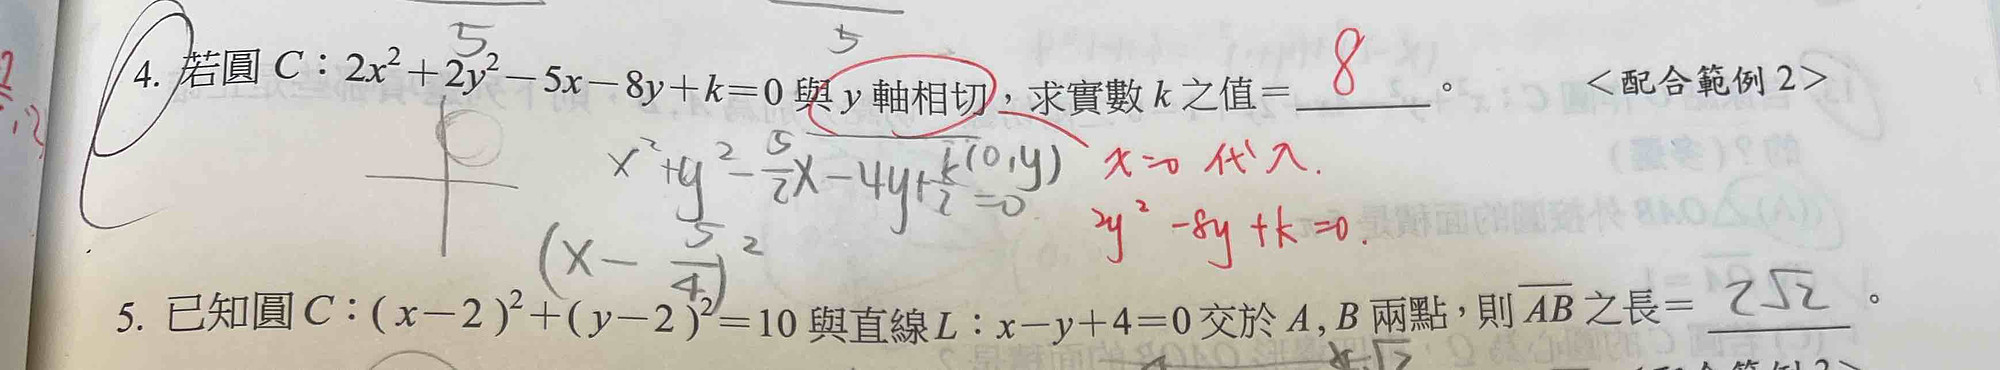 5 5
4. 若圓 C：2x²+2y²−5x−8y+k=0 與 y 軸相切，求實數 k 之值= 8 。 <配合範例 2>
x²+y²−5/2x−4y+k/2=0 (0,y) x=0 代入.
(x−5/4)² 2y²−8y+k=0.
5. 已知圓 C：(x−2)²+(y−2)²=10 與直線 L：x−y+4=0 交於 A, B 兩點，則 AB 之長= 2√2 。